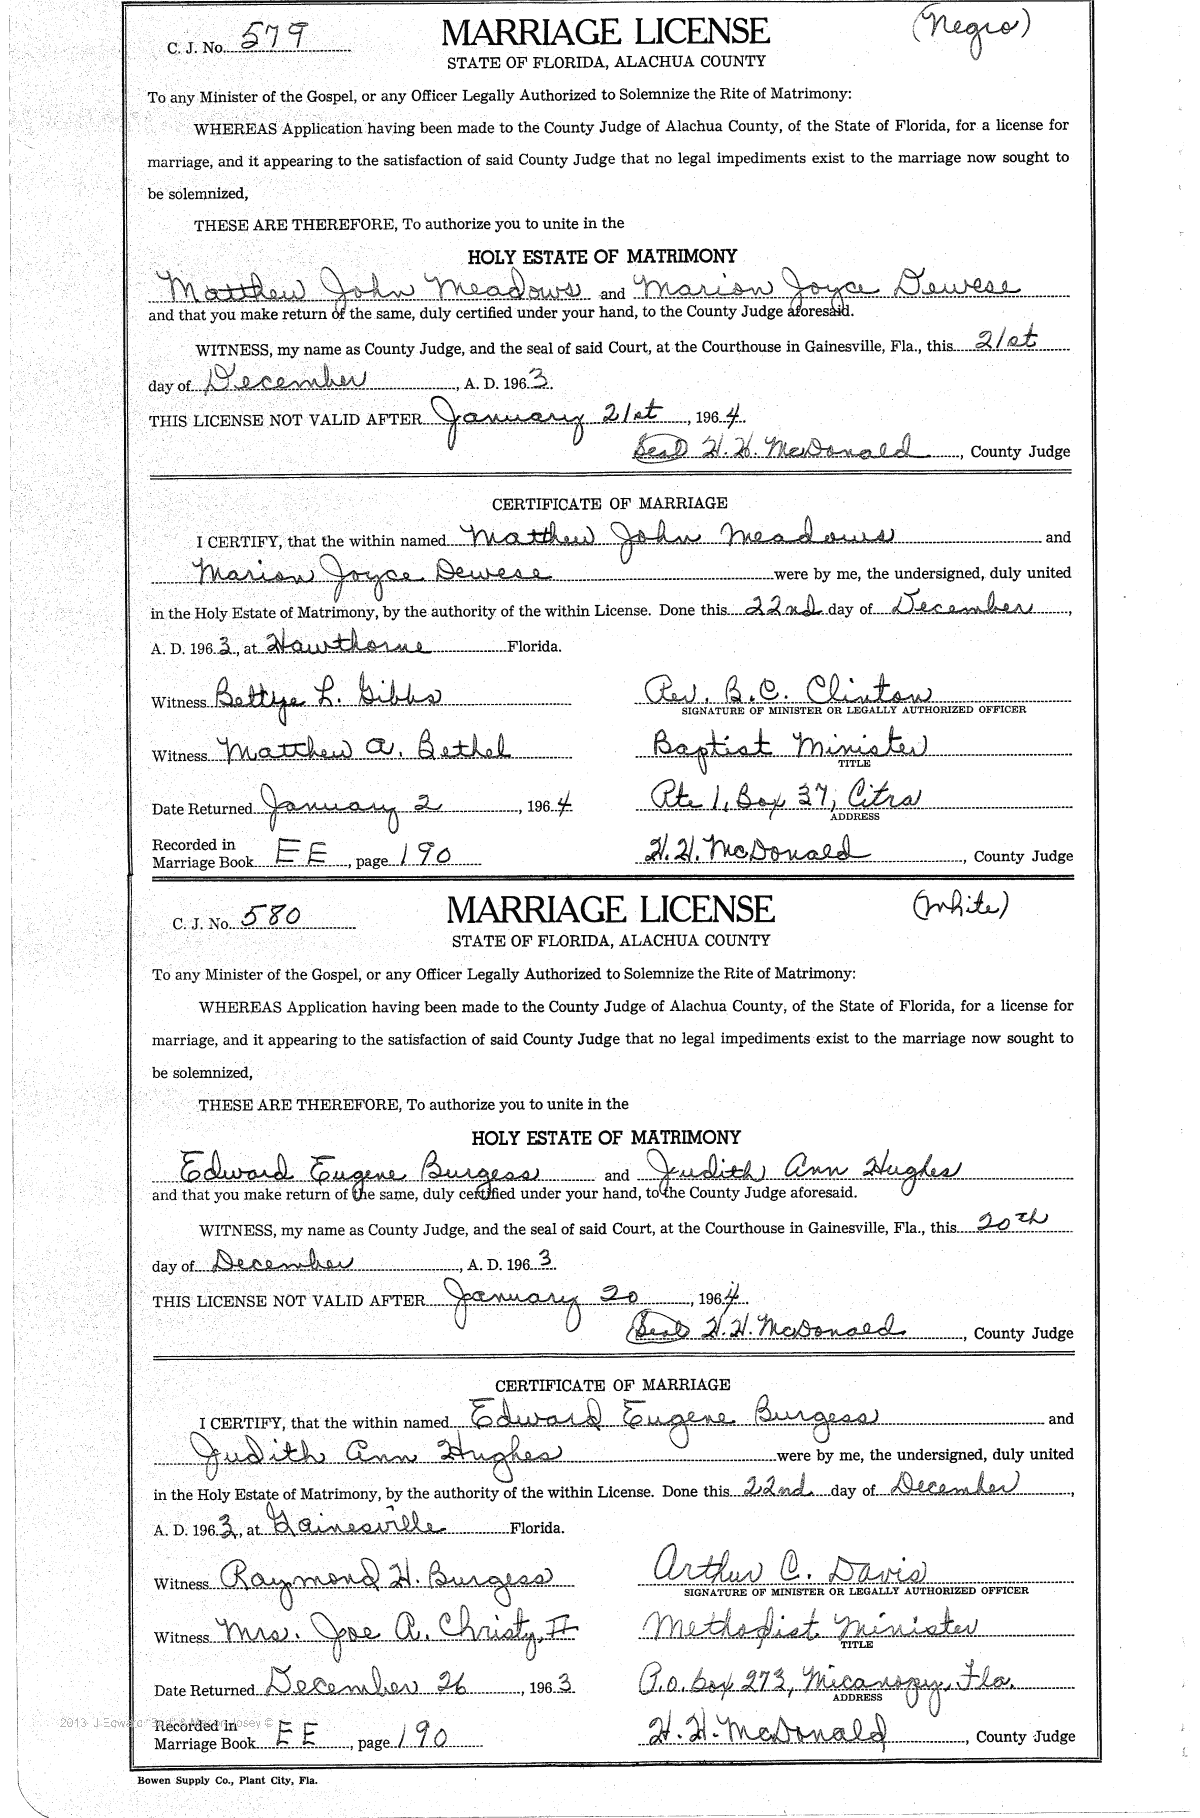 C. J. No. 579 MARRIAGE LICENSE (Negro)
STATE OF FLORIDA, ALACHUA COUNTY
To any Minister of the Gospel, or any Officer Legally Authorized to Solemnize the Rite of Matrimony:
WHEREAS Application having been made to the County Judge of Alachua County, of the State of Florida, for a license for
marriage, and it appearing to the satisfaction of said County Judge that no legal impediments exist to the marriage now sought to
be solemnized,
THESE ARE THEREFORE, To authorize you to unite in the
HOLY ESTATE OF MATRIMONY
Matthew John Meadows and Marion Joyce Dewese
and that you make return of the same, duly certified under your hand, to the County Judge aforesaid.
WITNESS, my name as County Judge, and the seal of said Court, at the Courthouse in Gainesville, Fla., this 21st
day of December, A. D. 1963.
THIS LICENSE NOT VALID AFTER January 21st, 1964.
Seal H. H. McDonald, County Judge
CERTIFICATE OF MARRIAGE
I CERTIFY, that the within named Matthew John Meadows and
Marion Joyce Dewese were by me, the undersigned, duly united
in the Holy Estate of Matrimony, by the authority of the within License. Done this 22nd day of December,
A. D. 1963, at Hawthorne Florida.
Witness Bettye L. Gibbs Rev. B. C. Clinton
SIGNATURE OF MINISTER OR LEGALLY AUTHORIZED OFFICER
Witness Matthew A. Bethel Baptist Minister
TITLE
Date Returned January 2, 1964 Rte 1, Box 37, Citra
ADDRESS
Recorded in
Marriage Book EE, page 190 H. H. McDonald, County Judge
C. J. No. 580 MARRIAGE LICENSE (White)
STATE OF FLORIDA, ALACHUA COUNTY
To any Minister of the Gospel, or any Officer Legally Authorized to Solemnize the Rite of Matrimony:
WHEREAS Application having been made to the County Judge of Alachua County, of the State of Florida, for a license for
marriage, and it appearing to the satisfaction of said County Judge that no legal impediments exist to the marriage now sought to
be solemnized,
THESE ARE THEREFORE, To authorize you to unite in the
HOLY ESTATE OF MATRIMONY
Edward Eugene Burgess and Judith Ann Hughes
and that you make return of the same, duly certified under your hand, to the County Judge aforesaid.
WITNESS, my name as County Judge, and the seal of said Court, at the Courthouse in Gainesville, Fla., this 20th
day of December, A. D. 1963.
THIS LICENSE NOT VALID AFTER January 20, 1964.
Seal H. H. McDonald, County Judge
CERTIFICATE OF MARRIAGE
I CERTIFY, that the within named Edward Eugene Burgess and
Judith Ann Hughes were by me, the undersigned, duly united
in the Holy Estate of Matrimony, by the authority of the within License. Done this 22nd day of December,
A. D. 1963, at Gainesville Florida.
Witness Raymond H. Burgess Arthur C. Davis
SIGNATURE OF MINISTER OR LEGALLY AUTHORIZED OFFICER
Witness Mrs. Joe A. Christy, II Methodist Minister
TITLE
Date Returned December 26, 1963 P.O. Box 273, Micanopy, Fla.
ADDRESS
2013 J Edward
Recorded in
Marriage Book EE, page 190 H. H. McDonald, County Judge
Bowen Supply Co., Plant City, Fla.